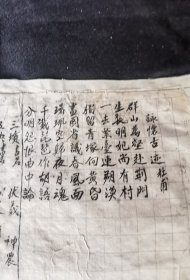 詠懷古迹 杜甫
群山萬壑赴荆門
生長明妃尚有村
一去紫臺連朔漠
獨留青塚向黄昏
畫圖省識春風面
環珮空歸夜月魂
千載琵琶作胡語
分明怨恨曲中論
三墳 伏羲 神農